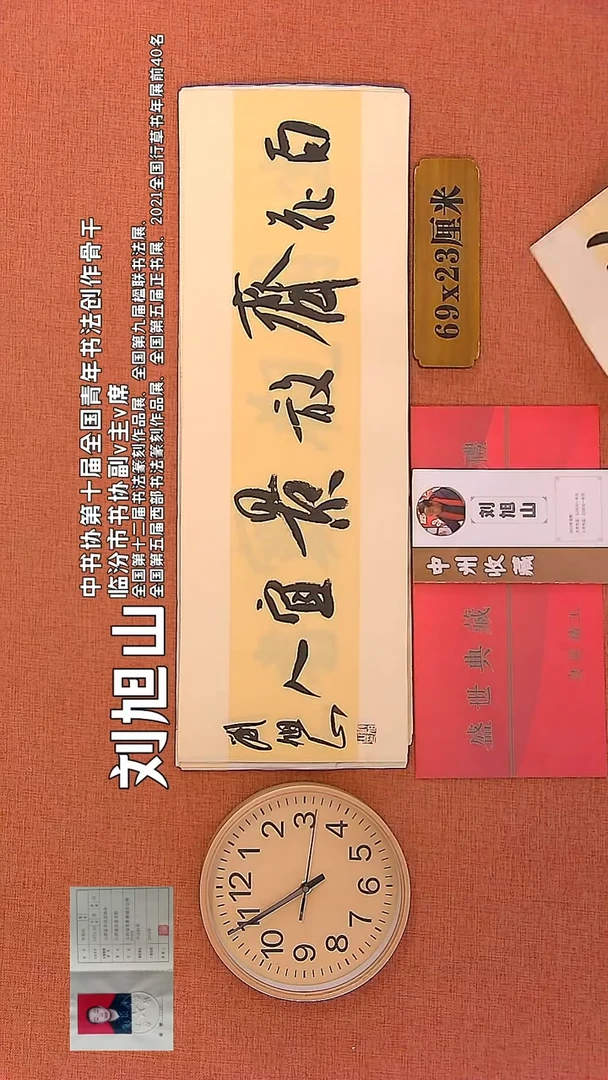 刘旭山
中书协第十届全国青年书法创作骨干
临汾市书协副v主v席
全国第十二届书法篆刻作品展、全国第九届楹联书法展、
全国第五届西部书法篆刻作品展、全国第五届正书展、2021全国行草书年展前40名
百花齊放景宜人
刘旭山
12 1 2 3 4 5 6 7 8 9 10 11
69x23厘米
刘旭山
中州收藏
盛世典藏
禮